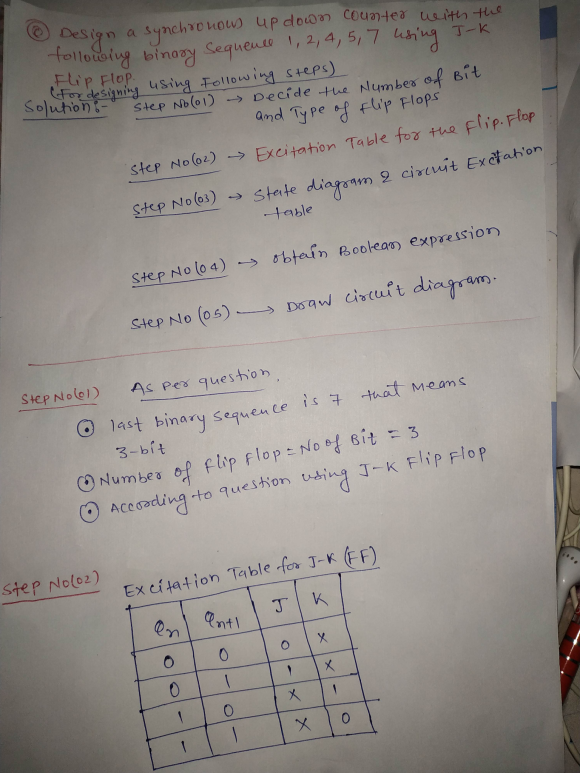 Q Design a synchronous up down counter with the
following binary Sequence 1, 2, 4, 5, 7 using J-K
Flip Flop.
(For designing using Following steps)
Solution:- Step No(01) → Decide the Number of Bit
and Type of Flip Flops
Step No(02) → Excitation Table for the Flip-Flop
Step No(03) → State diagram & circuit Excitation
table
Step No(04) → obtain Boolean expression
Step No (05) → Draw circuit diagram.
Step No(01) As per question.
last binary sequence is 7 that Means
3-bit
Number of flip flop = No of Bit = 3
According to question using J-K Flip Flop
Step No(02) Excitation Table for J-K (FF)
Qn Qn+1 J K
0 0 0 X
0 1 1 X
1 0 X 1
1 1 X 0